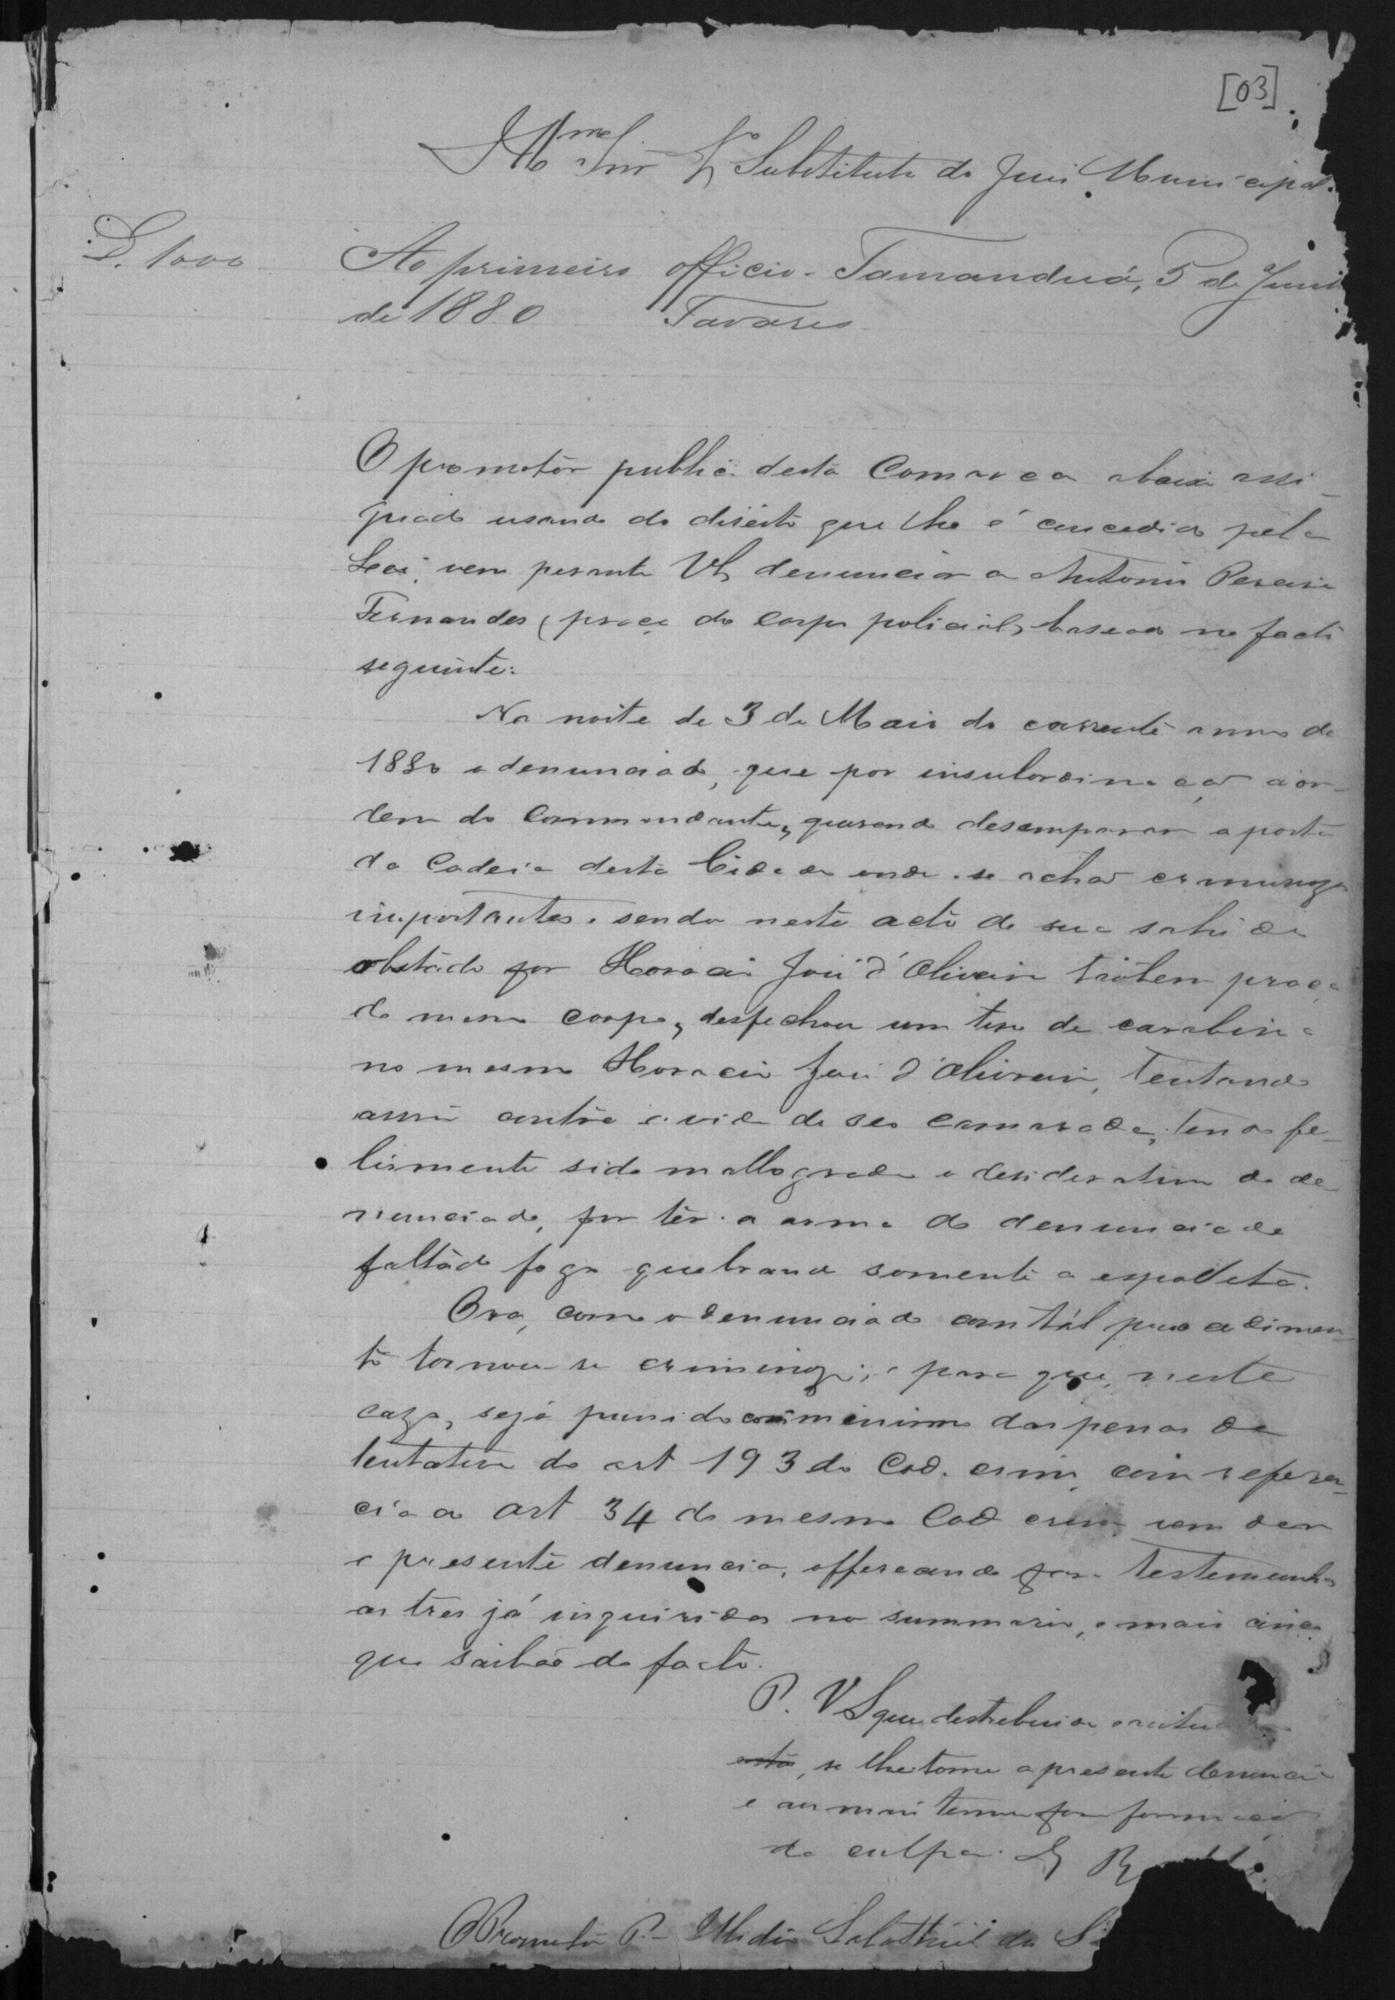 [03]
Illmo Snr 1º Substituto do Juis Municipal.
D. 1000
Ao primeiro officio. Tamanduá, 5 de Junho
de 1880 Tavares
O promotor publico desta Comarca abaixo assi-
gnado usando do direito que lhe é concedido pela
Lei, vem perante VS denunciar a Antonio Pereira
Fernandes, praça do corpo policial, baseado no facto
seguinte:
Na noite de 3 de Maio do corrente anno de
1880 o denunciado, que por insubordinação a or-
dem do commandante, querendo desemparar a porta
da Cadeia desta Cidade onde se achão criminozos
importantes, sendo neste acto de sua sahida
obstado por Horacio José d'Oliveira tãobem praça
do mesmo corpo, desfechou um tiro de carabina
no mesmo Horacio José d'Oliveira, tentando
assim contra a vida de seo camarada, tendo fe-
lismente sido mallograda o desideratum do de-
nunciado, por ter a arma do denunciado
faltado fogo quebrando somente a espolleta.
Ora, como o denunciado com tál procedimen-
to tornou-se criminozo; e para que, neste
cazo, seja punido com o minimo das penas da
tentativa do art 193 do Cod. crim, com referen-
cia ao art 34 do mesmo Cod crim, vem dar
a presente denuncia, offerecendo por testemunhas
as tres já inquiridas no summario, e mais cinco
que saibão do facto.
P. VS que destribuida e autu
esta, se lhe tome a presente denuncia
e aos mais termos para formação
da culpa. E R
O Promotor P.- Salathiel da S